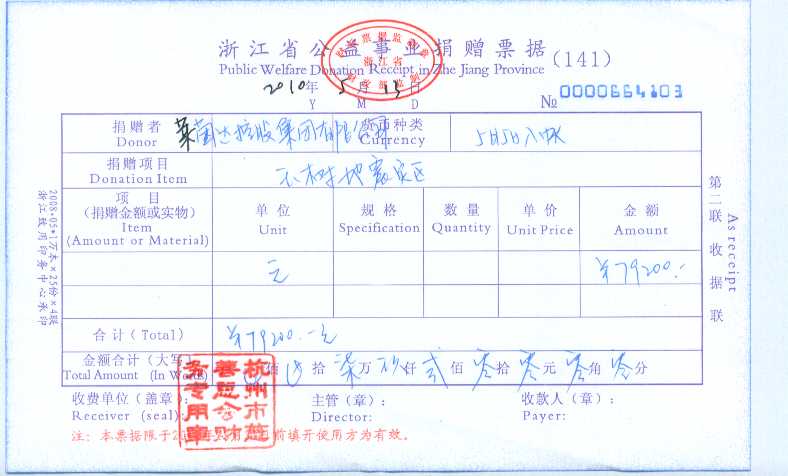 浙江省公益事业捐赠票据(141)
Public Welfare Donation Receipt in Zhe Jiang Province
2010年 5月 13日
Y M D
№ 0000664103
捐赠者 控股集团有限公司 货币种类 5月5日入账
Donor Currency
捐赠项目 玉树地震灾区
Donation Item
项 目 单 位 规 格 数 量 单 价 金 额
(捐赠金额或实物) Unit Specification Quantity Unit Price Amount
Item
(Amount or Material)
元 ¥79200.-
合计(Total) ¥79200.-元
金额合计(大写) 佰 拾 柒万 玖仟 贰佰 零拾 零元 零角 零分
Total Amount (In Words)
收费单位(盖章): 主管(章): 收款人(章):
Receiver (seal): Director: Payer:
注:本票据限于 前填开使用方为有效。
杭州市慈善总会财务专用章
浙江省
第二联 收据联
As receipt
2008.05*1万本×25份×4联